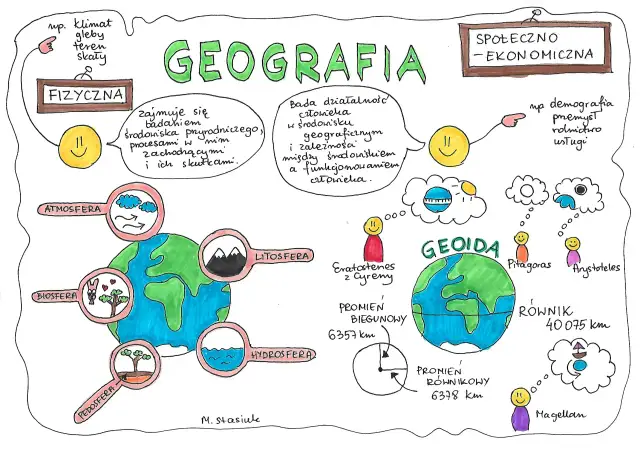 np. klimat
gleby
teren
skały
GEOGRAFIA
SPOŁECZNO
-EKONOMICZNA
FIZYCZNA
Zajmuje się
badaniem
środowiska przyrodniczego,
procesami w nim
zachodzącymi
i ich skutkami.
Bada działalność
człowieka
w środowisku
geograficznym
i zależności
między środowiskiem
a funkcjonowaniem
człowieka.
np demografia
przemysł
rolnictwo
usługi
ATMOSFERA
LITOSFERA
BIOSFERA
HYDROSFERA
PEDOSFERA
Eratostenes
z Cyreny
GEOIDA
Pitagoras
Arystoteles
PROMIEŃ
BIEGUNOWY
6357 km
RÓWNIK
40 075 km
PROMIEŃ
RÓWNIKOWY
6378 km
Magellan
M. Stasiuk